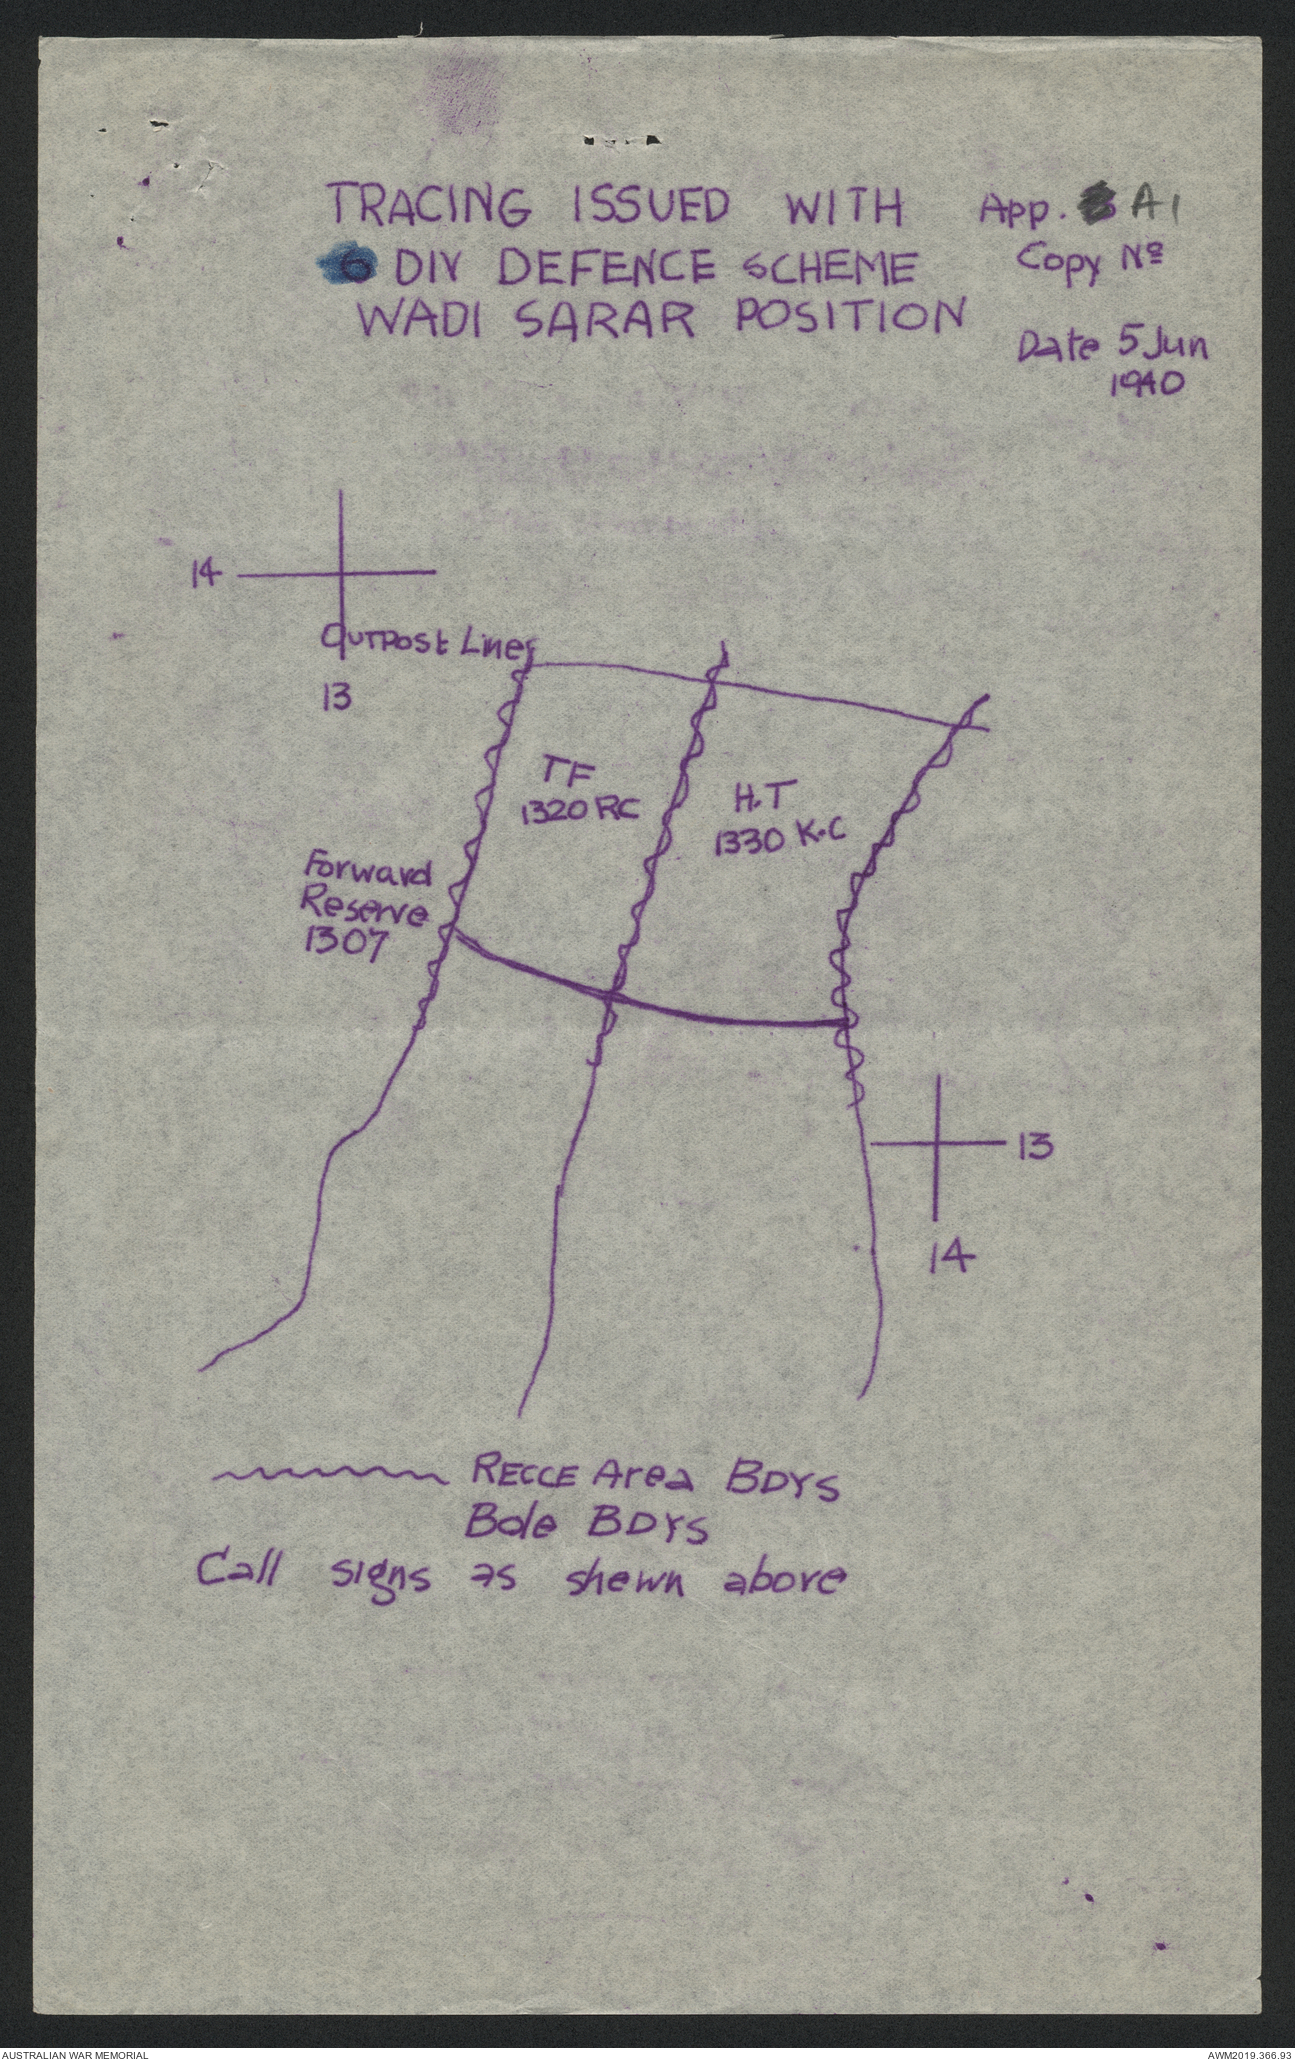 TRACING ISSUED WITH App. A1
6 DIV DEFENCE SCHEME Copy Nº
WADI SARAR POSITION
Date 5 Jun
1940
14
Outpost Lines
13
TF
1320 RC
H.T
1330 K.C
Forward
Reserve
1307
13
14
RECCE Area BDYS
Bde BDYS
Call signs as shewn above
AUSTRALIAN WAR MEMORIAL
AWM2019.366.93